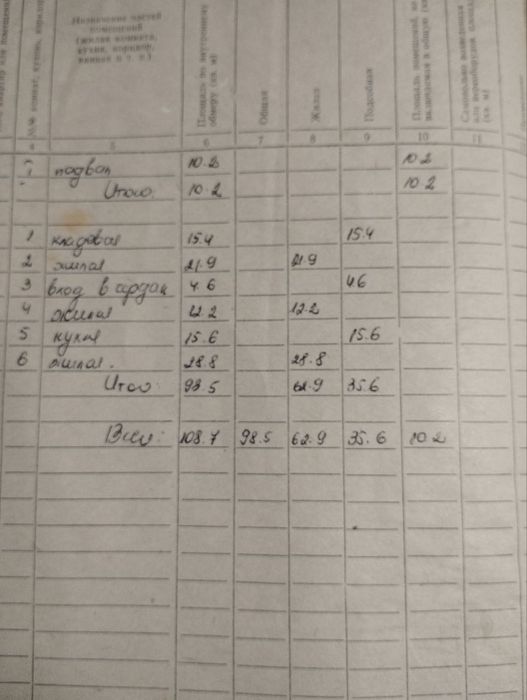 Назначение частей
помещений
(жилая комната,
кухня, коридор,
ванная и т. п.)
Площадь по внутреннему
обмеру (кв. м)
Общая
Жилая
Подсобная
5 6 7 8 9 10 11
подвал 10.2 10.2
Итого 10.2 10.2
1 кладовая 15.4 15.4
2 жилая 21.9 21.9
3 вход в ардак 4.6 4.6
4 жилая 12.2 12.2
5 кухня 15.6 15.6
6 жилая. 28.8 28.8
Итого: 98.5 62.9 35.6
Всего: 108.7 98.5 62.9 35.6 10.2